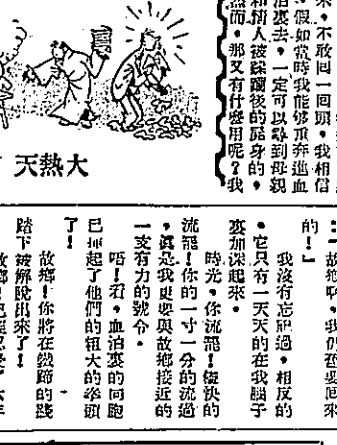 來，不敢回一回頭，我相信
，假如當時我能够重奔進血
泊裏去，一定可以尋到母親
和情人被蹂躪後的屍身的，
然而，那又有什麼用呢？我
天熱大
的！」
我沒有忘記過，相反的
，它只有一天天的在我腦子
裏加深起來。
時光，你流罷！儘快的
流罷！你的一寸一分的流過
，眞是我更要與故鄉接近的
一支有力的號令。
唔！看，血泊裏的同胞
已揮起了他們的粗大的拳頭
了！
故鄉！你將在鐵蹄的踐
踏下被解脫出來了！